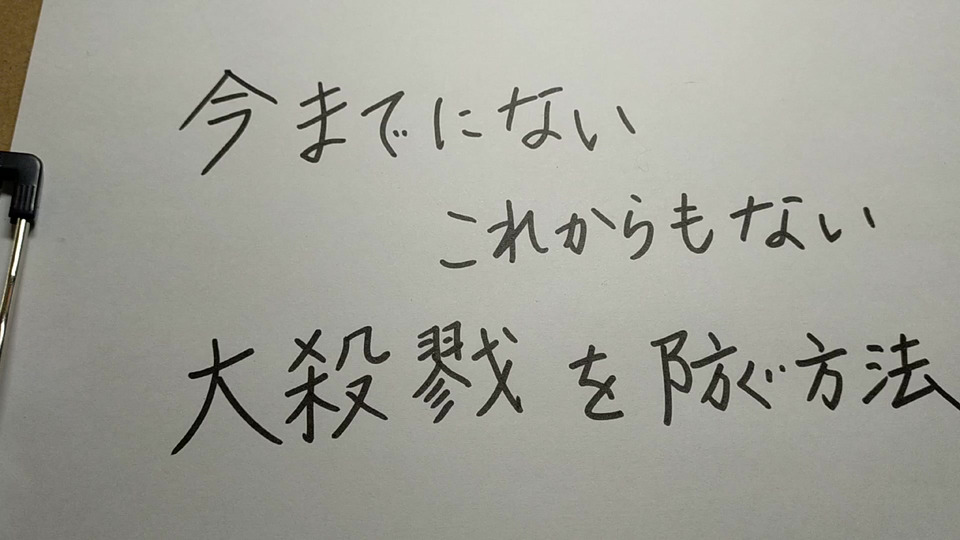 今までにない
これからもない
大殺戮を防ぐ方法